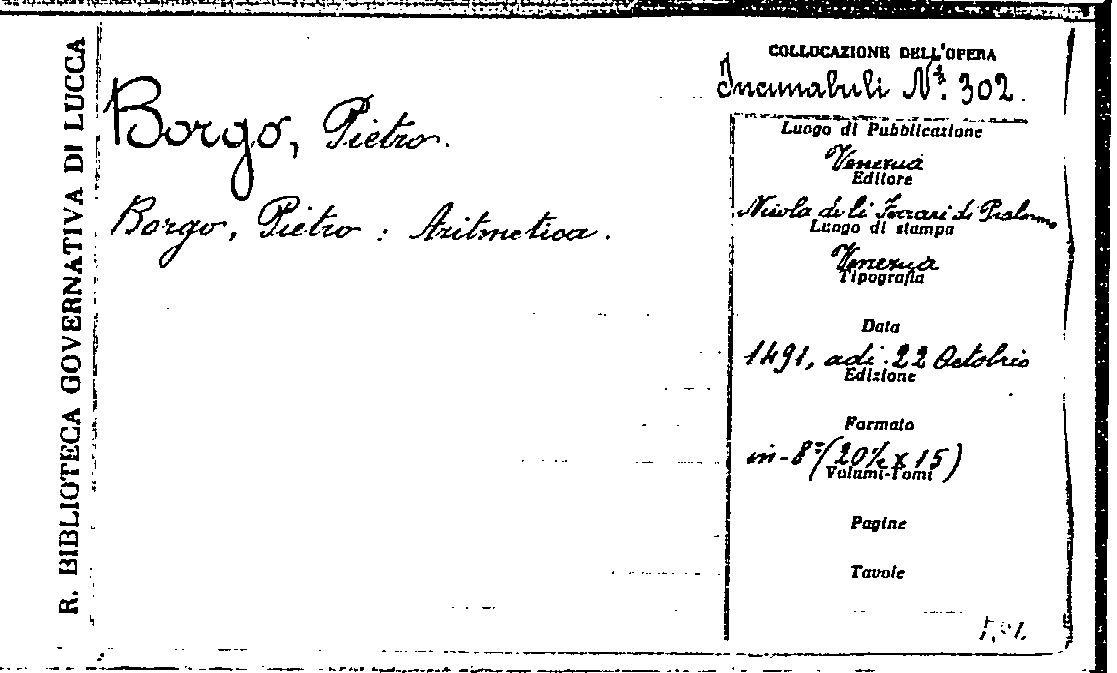 R. BIBLIOTECA GOVERNATIVA DI LUCCA
Borgo, Pietro.
Borgo, Pietro : Aritmetica.
COLLOCAZIONE DELL'OPERA
Incunabuli N. 302.
Luogo di Pubblicazione
Venezia
Editore
Nicola de li Ferrari de Pralormo
Luogo di stampa
Venezia
Tipografia
Data
1491, adi. 22 Octobrio
Edizione
Formato
in-8° (20½ x 15)
Volumi-Tomi
Pagine
Tavole